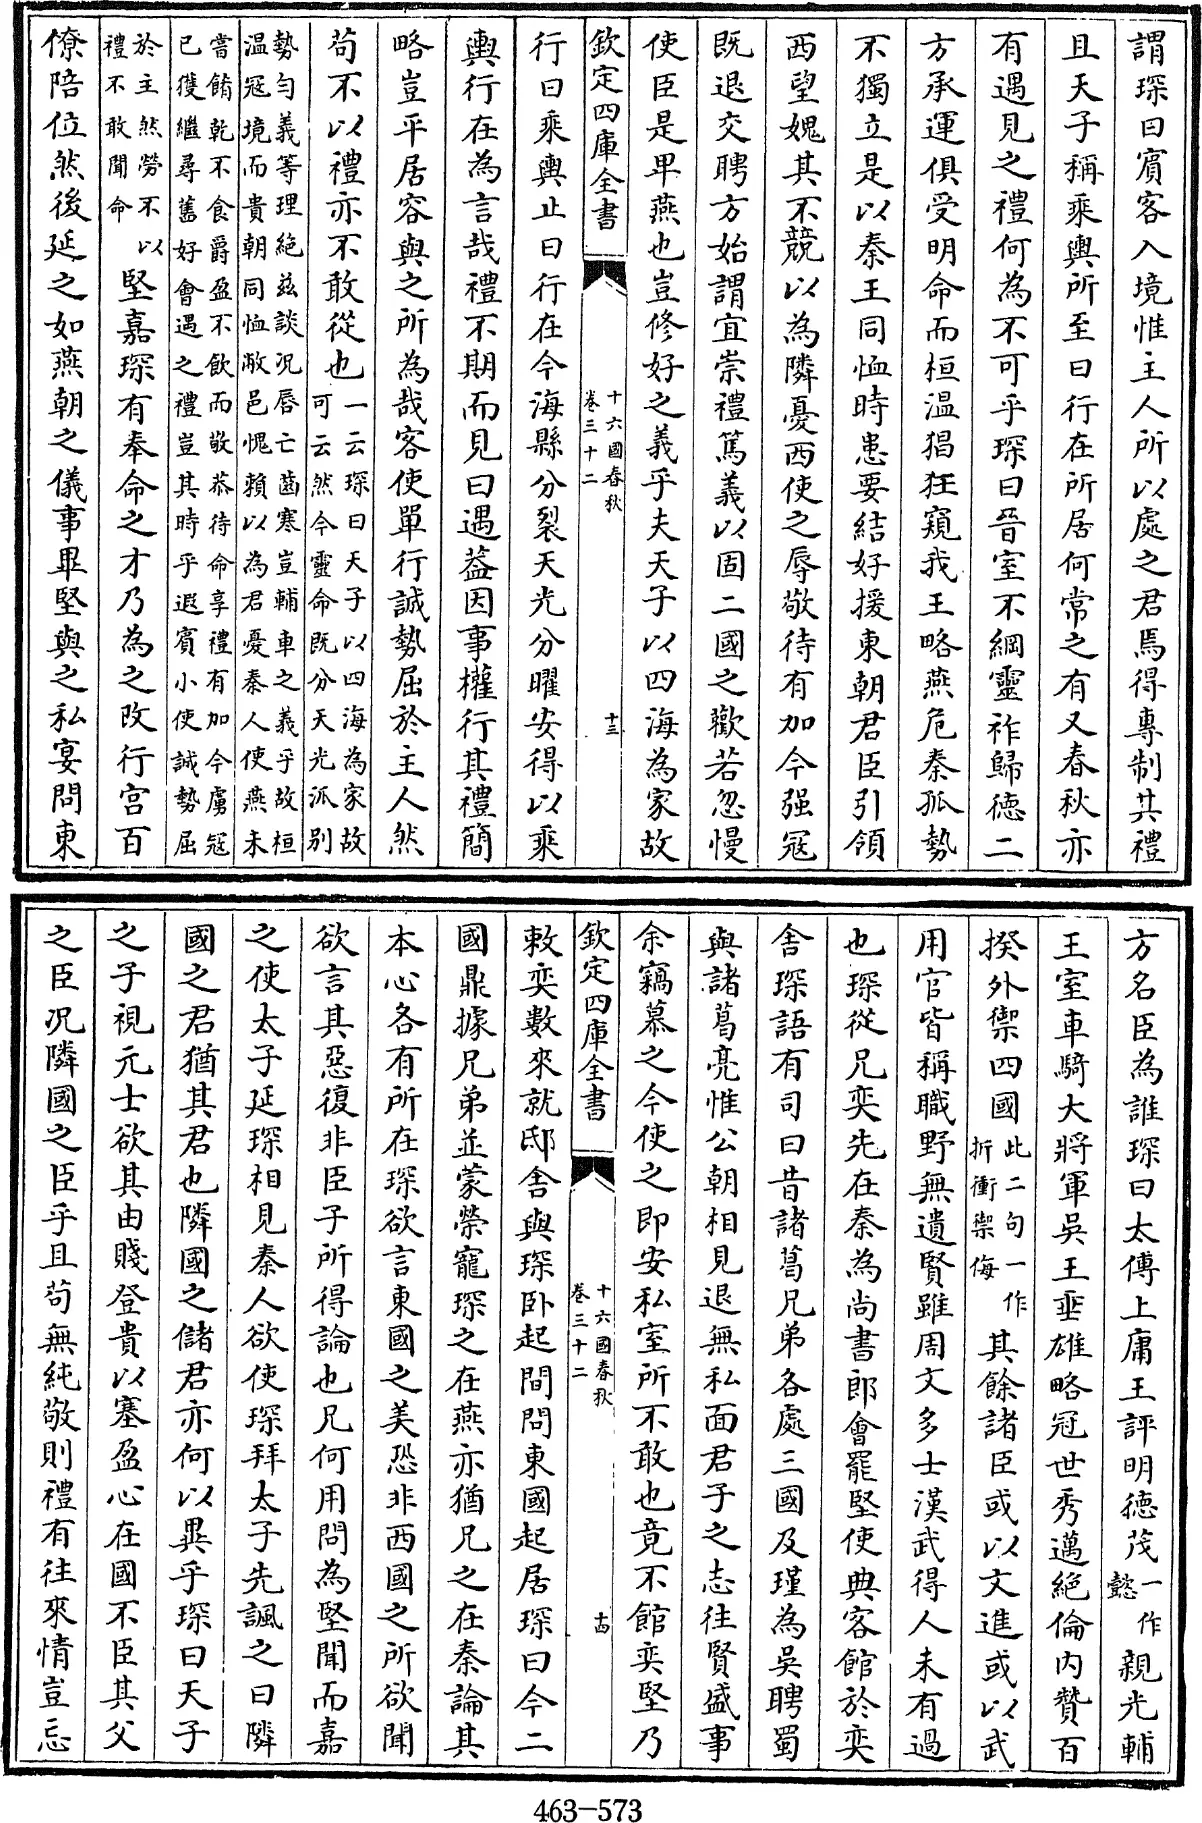 謂琛曰賓客入境惟主人所以處之君焉得專制其禮
且天子稱乘輿所至曰行在所居何常之有又春秋亦
有遇見之禮何為不可乎琛曰晉室不綱靈祚歸德二
方承運俱受明命而桓温猖狂窺我王略燕危秦孤勢
不獨立是以秦王同恤時患要結好援東朝君臣引領
西望媿其不競以為隣憂西使之辱敬待有加今强寇
既退交聘方始謂宜崇禮篤義以固二國之歡若忽慢
使臣是卑燕也豈修好之義乎夫天子以四海為家故
欽定四庫全書
十六國春秋
卷三十二
十三
行曰乘輿止曰行在今海縣分裂天光分曜安得以乘
輿行在為言哉禮不期而見曰遇葢因事權行其禮簡
略豈平居容與之所為哉客使單行誠勢屈於主人然
苟不以禮亦不敢從也
一云琛曰天子以四海為家故
可云然今靈命既分天光派别
勢匀義等理絶兹談况唇亡齒寒豈輔車之義乎故桓
温冦境而貴朝同恤敝邑愧賴以為君憂秦人使燕未
嘗餚乾不食爵盈不飲而敬恭待命享禮有加今虜冦
已獲繼尋舊好會遇之禮豈其時乎遐賓小使誠勢屈
於主然勞不以
禮不敢聞命
堅嘉琛有奉命之才乃為之改行宫百
僚陪位然後延之如燕朝之儀事畢堅與之私宴問東
方名臣為誰琛曰太傅上庸王評明德茂
一作
懿
親光輔
王室車騎大將軍吳王垂雄略冠世秀邁絶倫内贊百
揆外禦四國
此二句一作
折衝禦侮
其餘諸臣或以文進或以武
用官皆稱職野無遺賢雖周文多士漢武得人未有過
也琛從兄奕先在秦為尚書郎會罷堅使典客館於奕
舍琛語有司曰昔諸葛兄弟各處三國及瑾為吳聘蜀
與諸葛亮惟公朝相見退無私面君子之志往賢盛事
余竊慕之今使之即安私室所不敢也竟不館奕堅乃
欽定四庫全書
十六國春秋
卷三十二
十四
敕奕數來就邸舍與琛卧起間問東國起居琛曰今二
國鼎據兄弟並蒙榮寵琛之在燕亦猶兄之在秦論其
本心各有所在琛欲言東國之美恐非西國之所欲聞
欲言其惡復非臣子所得論也兄何用問為堅聞而嘉
之使太子延琛相見秦人欲使琛拜太子先諷之曰隣
國之君猶其君也隣國之儲君亦何以異乎琛曰天子
之子視元士欲其由賤登貴以塞盈心在國不臣其父
之臣况隣國之臣乎且苟無純敬則禮有往來情豈忘
463-573